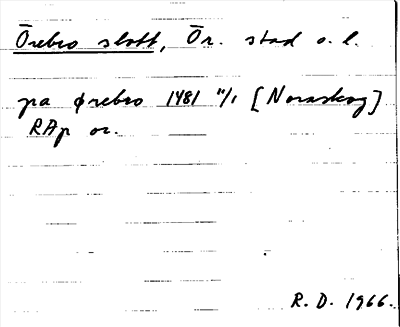 Örebro slott, Ör. stad o. l.
pa ørebro 1481 11/1 [Noraskog]
RAp or.
R. D. 1966.